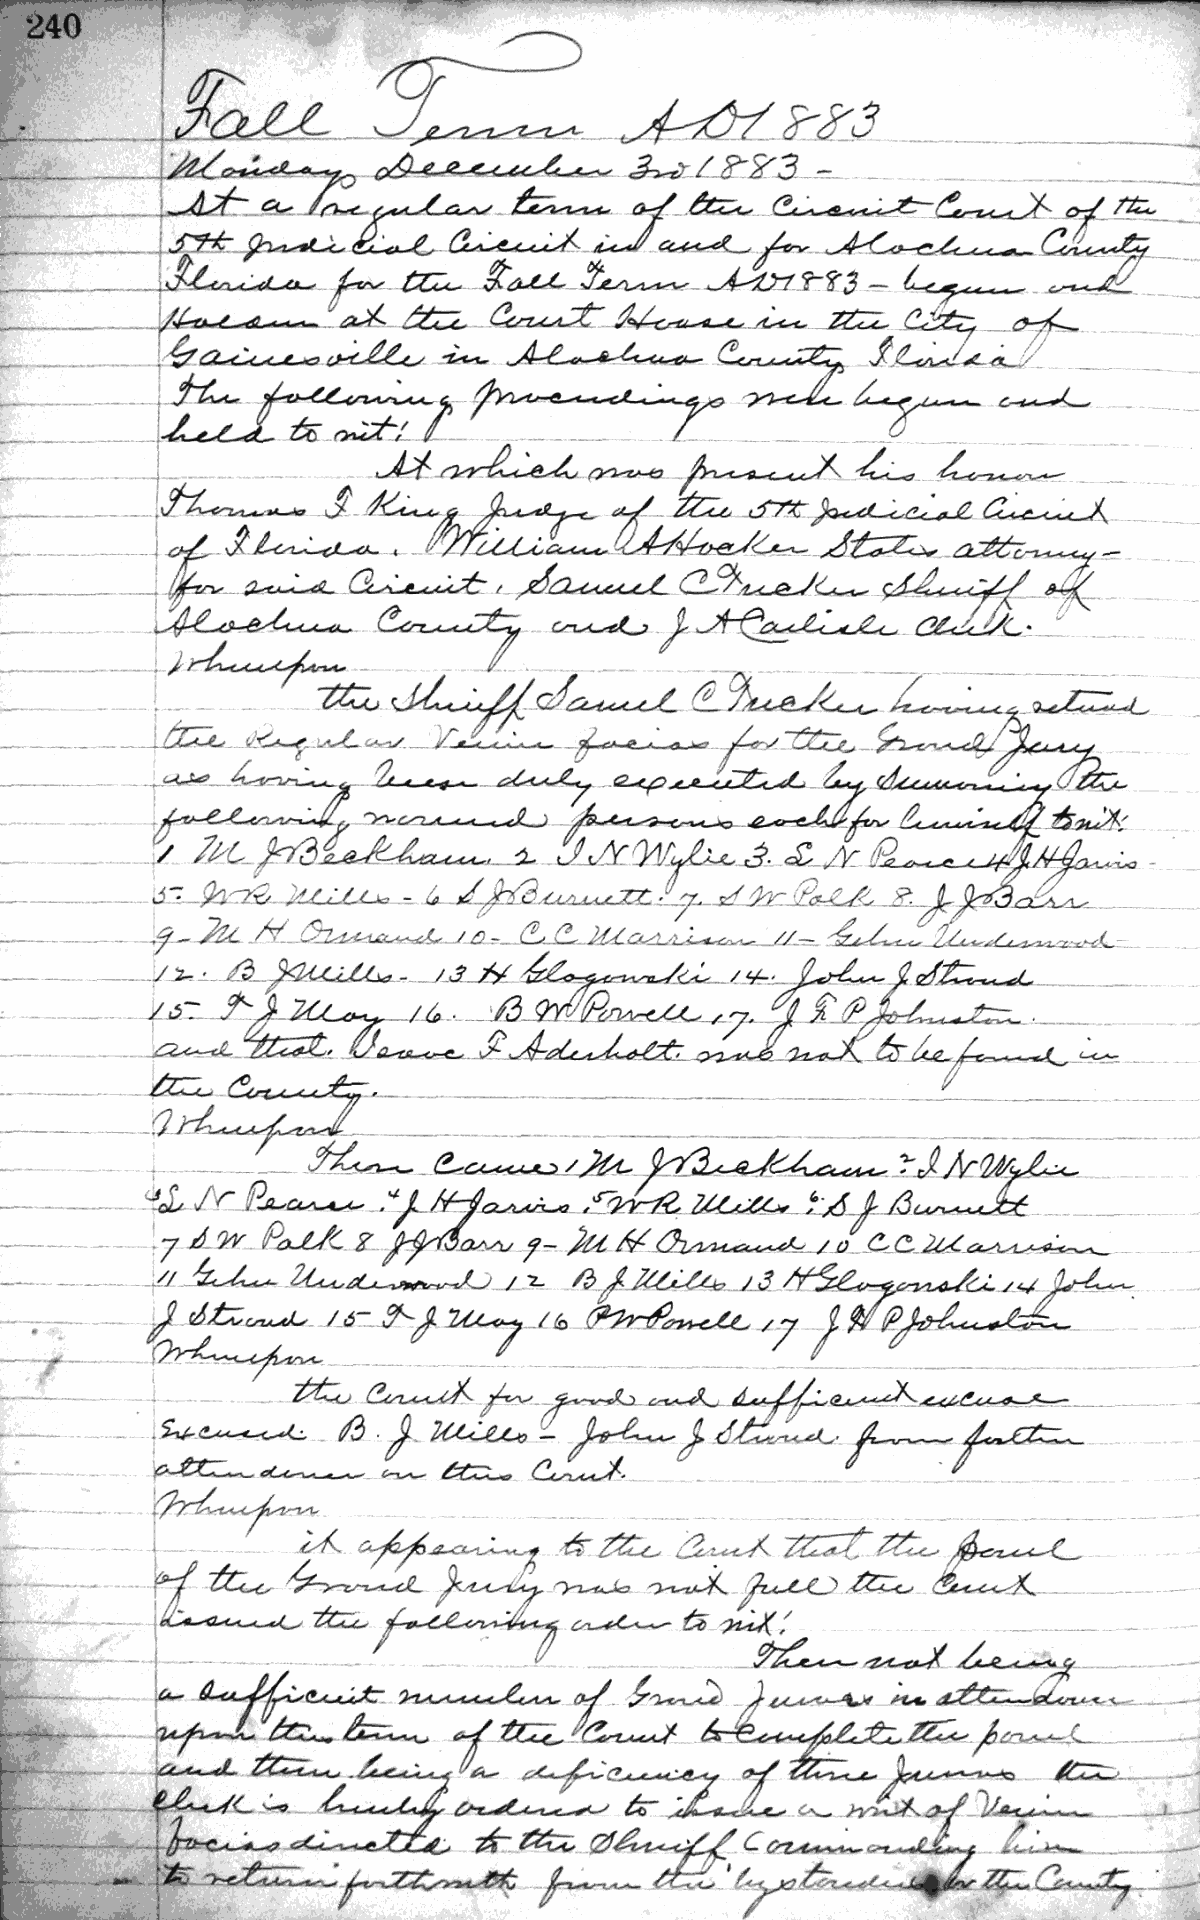 240
Fall Term AD 1883
Monday December 3rd 1883 -
At a regular term of the Circuit Court of the
5th Judicial Circuit in and for Alachua County
Florida for the Fall Term AD 1883 - begun and
Holden at the Court House in the City of
Gainesville in Alachua County Florida
The following proceedings were begun and
held to wit:
At which was present his honor
Thomas F King Judge of the 5th Judicial Circuit
of Florida. William A Hocker States attorney -
for said Circuit. Samuel C Tucker Sheriff of
Alachua County and J A Carlisle Clerk.
Whereupon
the Sheriff Samuel C Tucker having returned
the Regular Venire facias for the Grand Jury
as having been duly executed by summoning the
following named persons each for himself to wit:
1 M J Beckham 2 I N Wylie 3. L N Pearce 4 J H Jarvis -
5. W R Mills - 6 S J Burnett. 7. S W Polk 8. J J Barr
9 - M H Ormand 10 - C C Marrison 11 - Gehu Underwood
12. B J Mills - 13 H Glogowski 14. John J Stroud
15. T J May 16. B W Powell 17. J F P Johnston.
and that. Isaac F Aderholt. was not to be found in
the County.
Whereupon
There Came 1 M J Beckham 2 I N Wylie
3 L N Pearce 4 J H Jarvis 5 W R Mills 6 S J Burnett
7 S W Polk 8 J J Barr 9 - M H Ormand 10 C C Marrison
11 Gehu Underwood 12 B J Mills 13 H Glogowski 14 John
J Stroud 15 T J May 16 P W Powell 17 J F P Johnston
Whereupon
the Court for good and sufficient excuse
Excused. B. J Mills - John J Stroud. from further
attendance on this Court.
Whereupon
it appearing to the Court that the panel
of the Grand Jury was not full the Court
issued the following order to wit:
There not being
a sufficient number of Grand Jurors in attendance
upon this term of the Court to complete the panel
and there being a deficiency of three Jurors the
Clerk is hereby ordered to issue a writ of Venire
facias directed to the Sheriff Commanding him
to return forthwith from the bystanders or the County